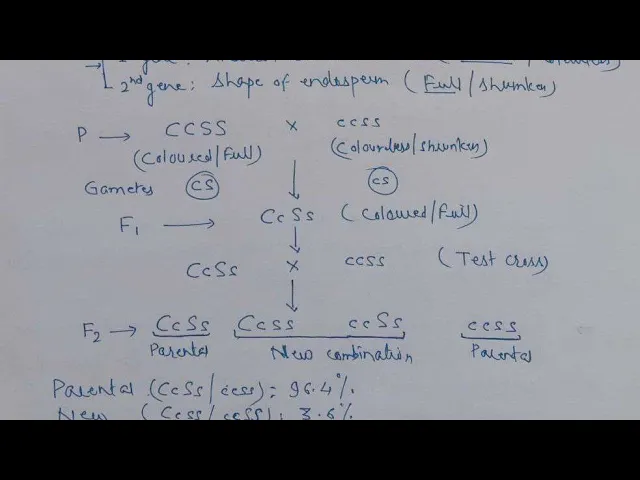 2nd gene: Shape of endosperm (Full/shrunken)
P → CCSS × ccss
(Coloured/Full) (Colourless/shrunken)
Gametes CS cs
F1 → CcSs (Coloured/Full)
CcSs × ccss (Test cross)
F2 → CcSs Ccss ccSs ccss
Parental New combination Parental
Parental (CcSs/ccss): 96.4%
New (Ccss/ccSS): 3.6%